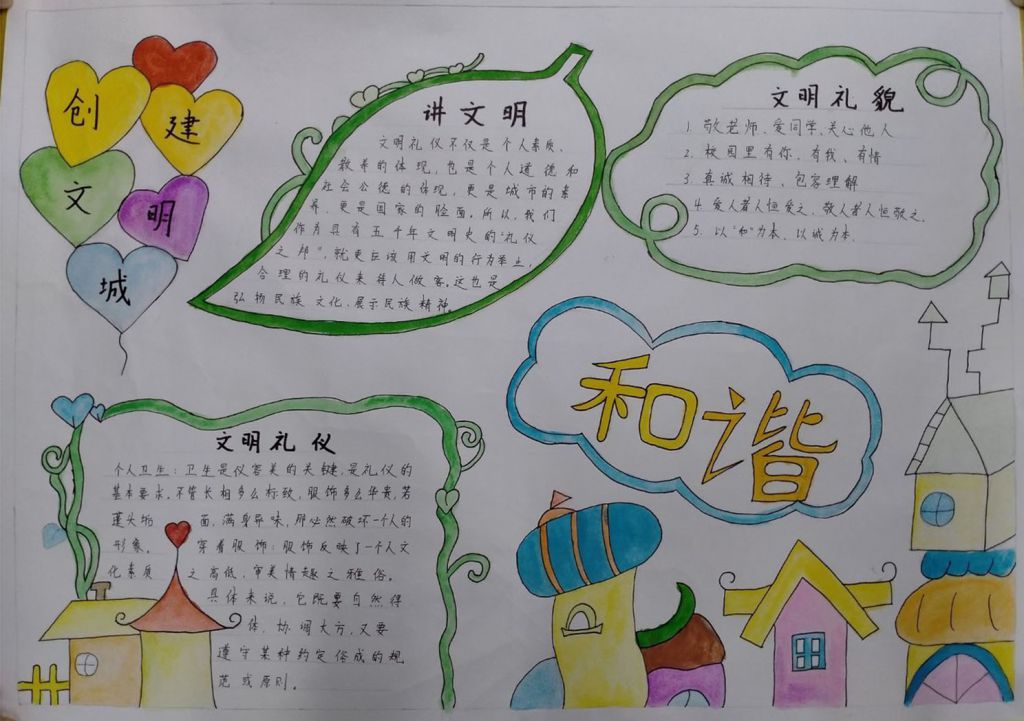 创
建
文
明
城
讲文明
文明礼仪不仅是个人素质、
教养的体现，也是个人道德和
社会公德的体现，更是城市的素
养、更是国家的脸面。所以，我们
作为具有五千年文明史的"礼仪
之邦"，就更应该用文明的行为举止，
合理的礼仪来待人做客。这也是
弘扬民族文化、展示民族精神。
文明礼貌
1. 敬老师、爱同学、关心他人
2. 校园里有你、有我、有情
3. 真诚相待、包容理解
4. 爱人者人恒爱之、敬人者人恒敬之.
5. 以"和"为本、以诚为本.
和谐
文明礼仪
个人卫生：卫生是仪容美的关键，是礼仪的
基本要求。不管长相多么标致，服饰多么华贵，若
蓬头垢面，满身异味，那必然破坏一个人的
形象。穿着服饰：服饰反映了一个人文
化素质之高低，审美情趣之雅俗。
具体来说，它既要自然得
体，协调大方，又要
遵守某种约定俗成的规
范或原则。